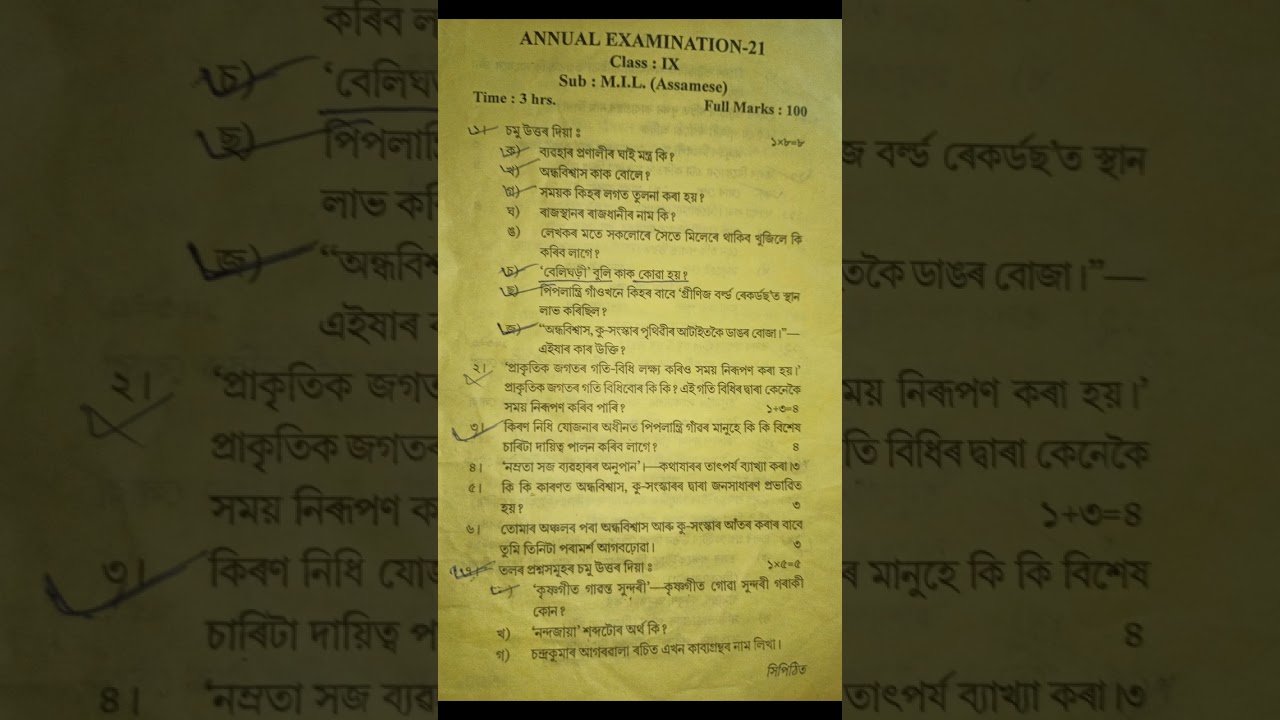 ANNUAL EXAMINATION-21
Class : IX
Sub : M.I.L. (Assamese)
Time : 3 hrs. Full Marks : 100
১। চমু উত্তৰ দিয়া ঃ ১×৮=৮
ক) ব্যৱহাৰ প্ৰণালীৰ ঘাই মন্ত্ৰ কি?
খ) অন্ধবিশ্বাস কাক বোলে?
গ) সময়ক কিহৰ লগত তুলনা কৰা হয়?
ঘ) ৰাজস্থানৰ ৰাজধানীৰ নাম কি?
ঙ) লেখকৰ মতে সকলোৰে সৈতে মিলেৰে থাকিব খুজিলে কি
কৰিব লাগে?
চ) ‘বেলিঘড়ী’ বুলি কাক কোৱা হয়?
ছ) পিপলান্ত্ৰি গাঁওখনে কিহৰ বাবে ‘গ্ৰীণিজ বৰ্ল্ড ৰেকৰ্ডছ’ত স্থান
লাভ কৰিছিল?
জ) “অন্ধবিশ্বাস, কু-সংস্কাৰ পৃথিৱীৰ আটাইতকৈ ডাঙৰ বোজা।”—
এইষাৰ কাৰ উক্তি?
২। ‘প্ৰাকৃতিক জগতৰ গতি-বিধি লক্ষ্য কৰিও সময় নিৰূপণ কৰা হয়।’
প্ৰাকৃতিক জগতৰ গতি বিধিবোৰ কি কি? এই গতি বিধিৰ দ্বাৰা কেনেকৈ
সময় নিৰূপণ কৰিব পাৰি? ১+৩=৪
৩। কিৰণ নিধি যোজনাৰ অধীনত পিপলান্ত্ৰি গাঁৱৰ মানুহে কি কি বিশেষ
চাৰিটা দায়িত্ব পালন কৰিব লাগে? ৪
৪। ‘নম্ৰতা সজ ব্যৱহাৰৰ অনুপান’।—কথাষাৰৰ তাৎপৰ্য ব্যাখ্যা কৰা।৩
৫। কি কি কাৰণত অন্ধবিশ্বাস, কু-সংস্কাৰৰ দ্বাৰা জনসাধাৰণ প্ৰভাৱিত
হয়? ৩
৬। তোমাৰ অঞ্চলৰ পৰা অন্ধবিশ্বাস আৰু কু-সংস্কাৰ আঁতৰ কৰাৰ বাবে
তুমি তিনিটা পৰামৰ্শ আগবঢ়োৱা। ৩
৭। তলৰ প্ৰশ্নসমূহৰ চমু উত্তৰ দিয়া ঃ ১×৫=৫
ক) ‘কৃষ্ণগীত গাৱন্ত সুন্দৰী’—কৃষ্ণগীত গোৱা সুন্দৰী গৰাকী
কোন?
খ) ‘নন্দজায়া’ শব্দটোৰ অৰ্থ কি?
গ) চন্দ্ৰকুমাৰ আগৰৱালা ৰচিত এখন কাব্যগ্ৰন্থৰ নাম লিখা।
সিপিঠিত